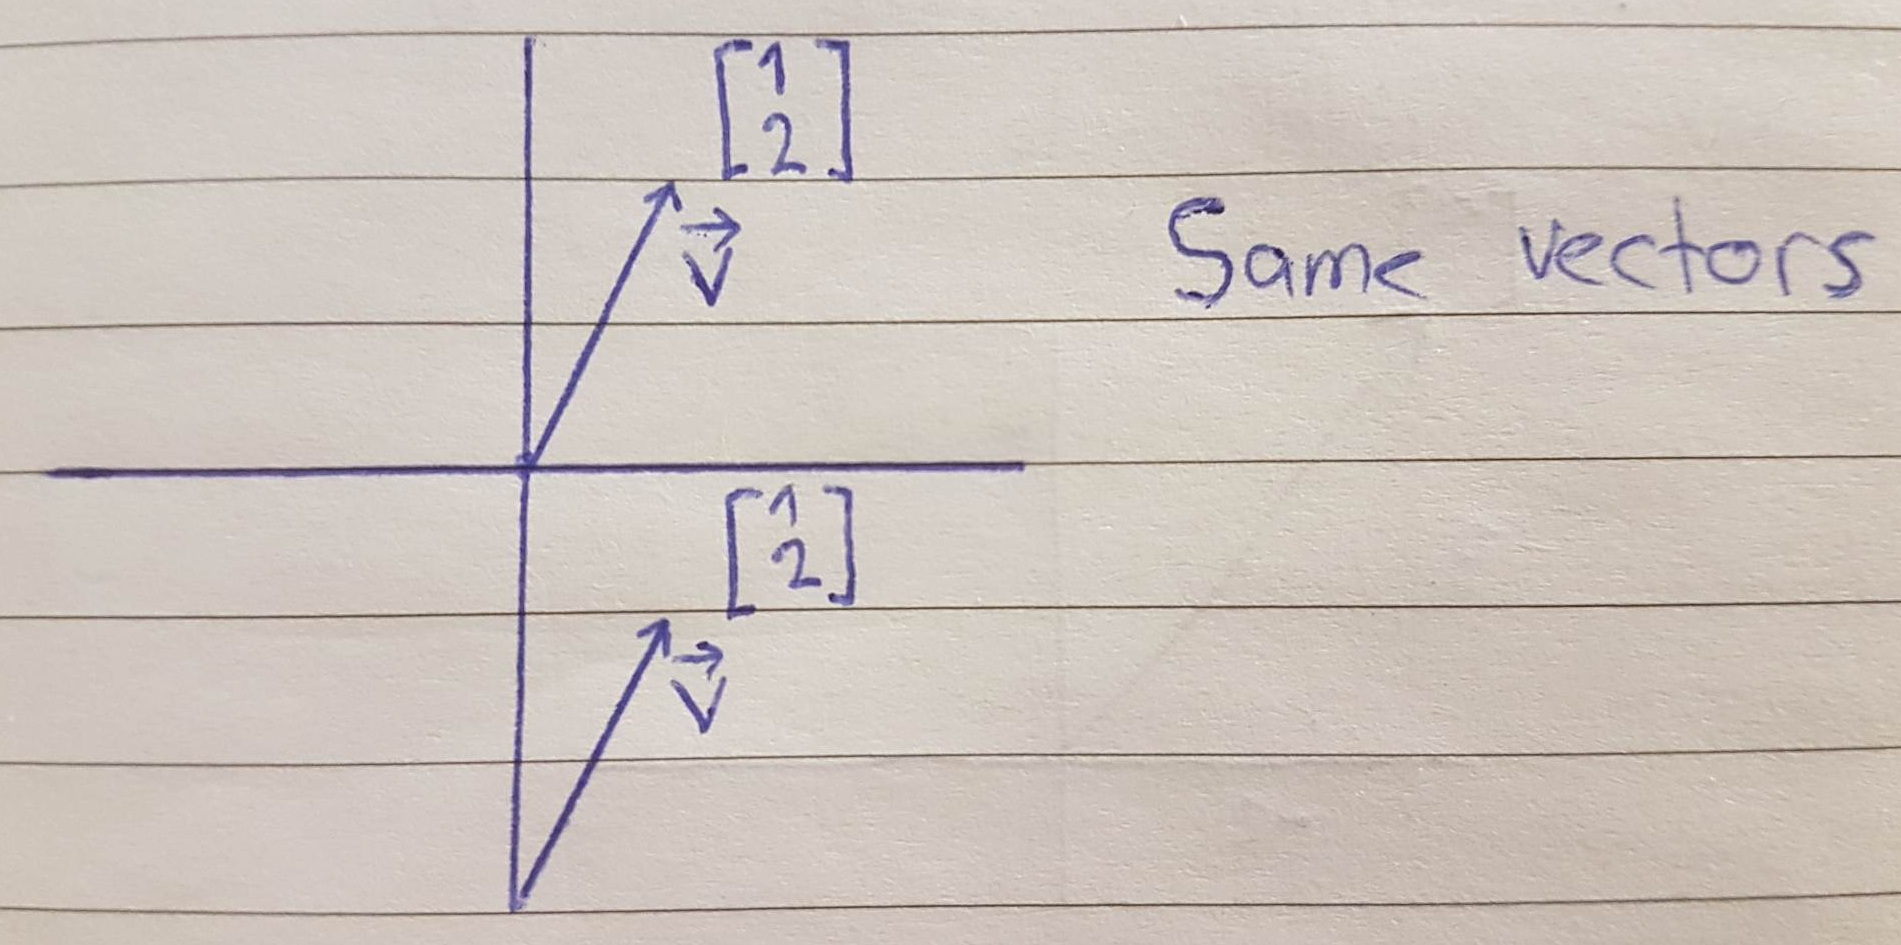 [1
2]
v⃗
Same vectors
[1
2]
v⃗